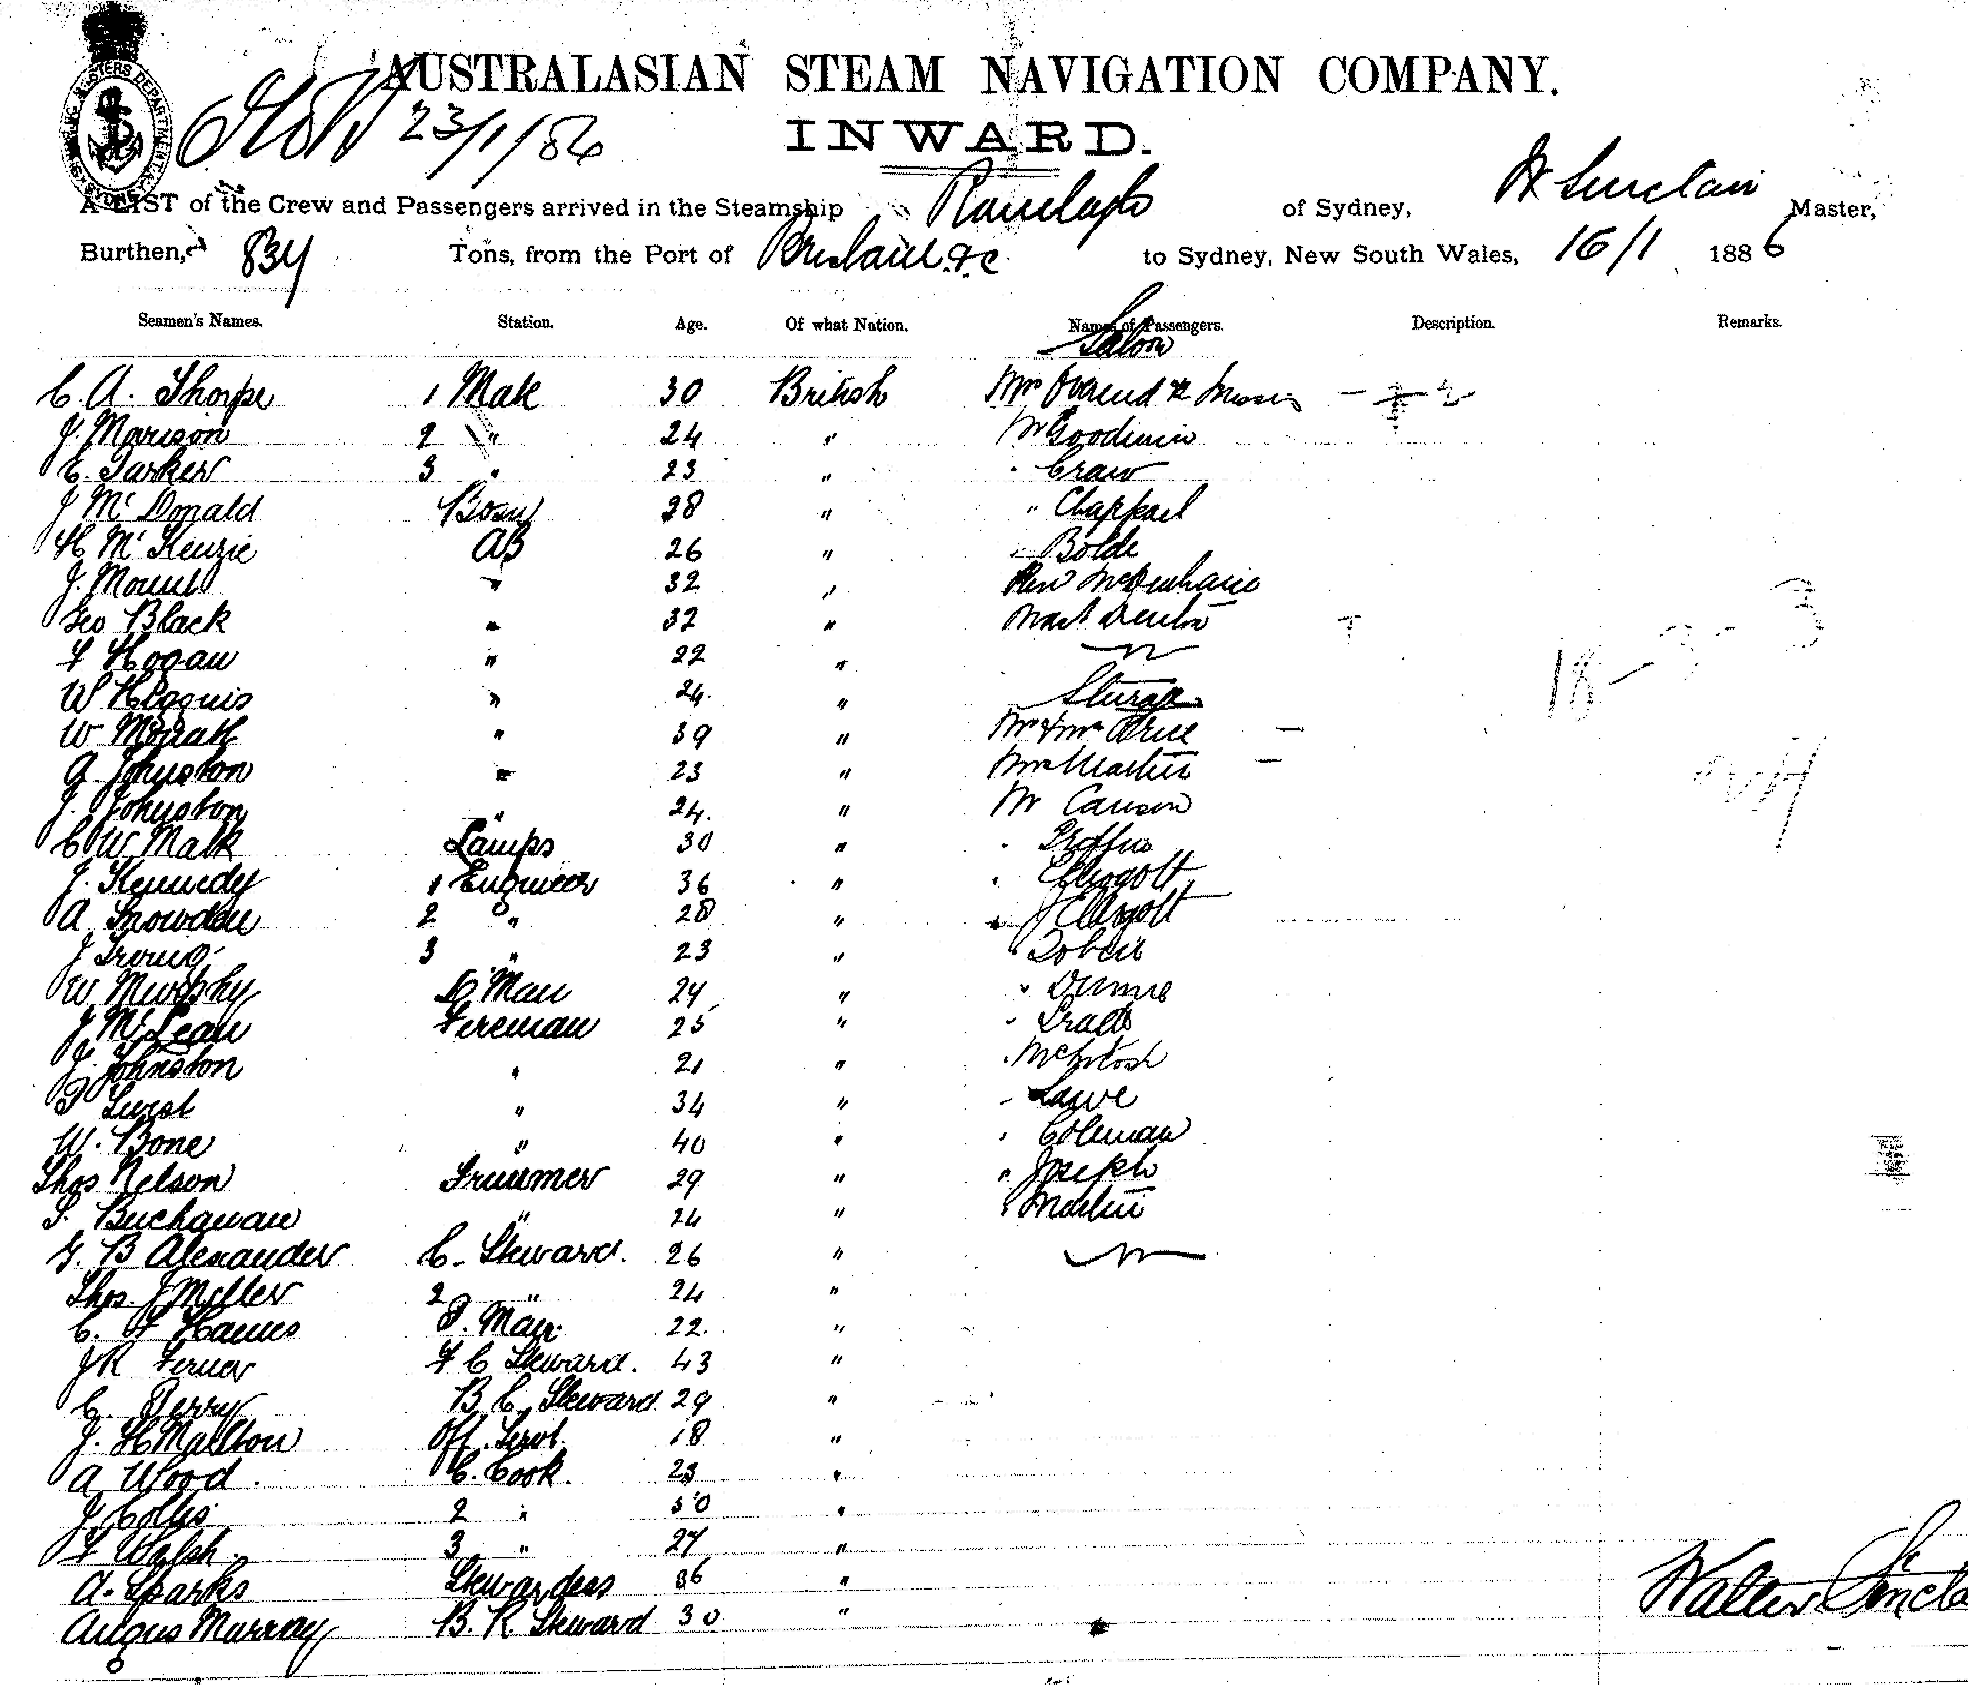 AUSTRALASIAN STEAM NAVIGATION COMPANY.
23/1/86
INWARD.
A LIST of the Crew and Passengers arrived in the Steamship Ranelagh of Sydney, W Sinclair Master,
Burthen, 834 Tons, from the Port of Brisbane &c to Sydney, New South Wales, 16/1 1886
Seamen's Names. Station. Age. Of what Nation. Names of Passengers. Description. Remarks.
Saloon
C. A. Thorpe 1 Mate 30 British Mr
J. Marison 2 " 24 " Mr Goodwin
E. Parker 3 " 23 " " Craw
J McDonald Bosun 28 " " Chappael
H McKenzie AB 26 " " Bolde
J. " 32 " Rev
Geo Black " 32 " Mast Denton
F Hogan " 22 "
W Higgins " 24 " Steerage
W " 39 " Mr & Mrs Price
A Johnston " 23 " Mrs Martin
J. Johnston " 24 " Mr
C W Malk Lamps 30 " "
J. Kennedy 1 Engineer 36 " "
A Snowden 2 " 28 " " J
J Irving 3 " 23 " "
W Murphy D Man 24 " " Dunne
J McLean Fireman 25 " "
J. Johnston " 21 " " McIntosh
P " 34 " " Lawe
W. Bone " 40 " " Coleman
Thos Nelson Trimmer 29 " " Joseph
S. Buchanan " 24 " " Martin
G. B Alexander C. Steward 26 "
Thos J Miller 2 " 24 "
C. F Hames P. Man 22 "
J R F C Steward. 43 "
C. Berry B C Steward 29 "
J. H Maelton Off. Servt 18 "
A Wood C. Cook 23 "
J Collis 2 " 50 "
F Walsh 3 " 27 "
A. Sparks Stewardess 36 "
Angus Murray B. R. Steward 30 "
Walter Sincla